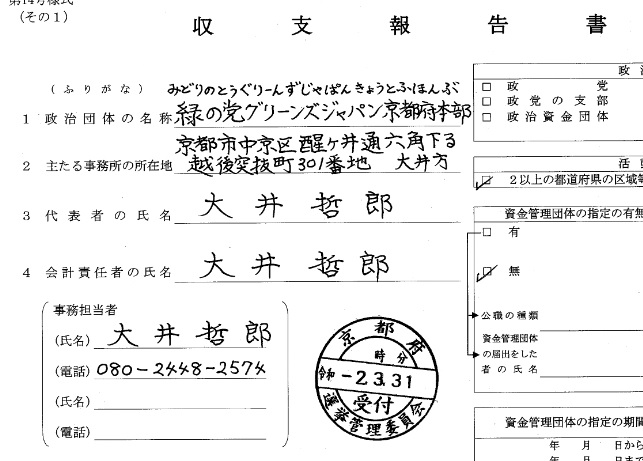 第14号様式
(その1)
収支報告書
(ふりがな) みどりのとうぐりーんずじゃぱんきょうとふほんぶ
1 政治団体の名称 緑の党グリーンズジャパン京都府本部
京都市中京区醒ヶ井通六角下る
2 主たる事務所の所在地 越後突抜町301番地 大井方
3 代表者の氏名 大井哲郎
4 会計責任者の氏名 大井哲郎
事務担当者
(氏名) 大井哲郎
(電話) 080-2448-2574
(氏名)
(電話)
京都府
時 分
令和 -2 3.31
受付
選挙管理委員会
政治
□ 政党
□ 政党の支部
□ 政治資金団体
活
2以上の都道府県の区域等
資金管理団体の指定の有無
□ 有
無
公職の種類
資金管理団体
の届出をした
者の氏名
資金管理団体の指定の期間
年 月 日から
年 月 日まで